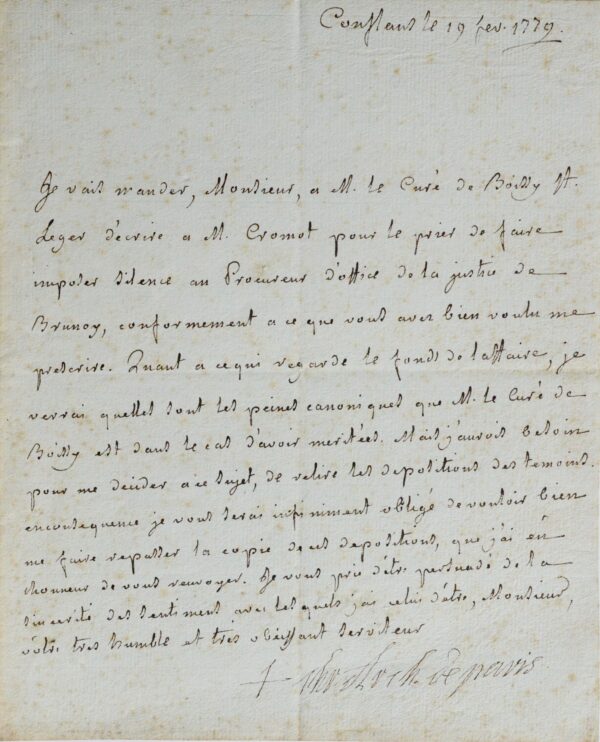 Conflans le 19 fev. 1779.
Je vais mander, Monsieur, a M. le Curé de Boissy St.
Leger d'ecrire a M. Cromot pour le prier de faire
imposer silence au Procureur d'office de la justice de
Brunoy, conformement a ce que vous avez bien voulu me
prescrire. Quant a ce qui regarde le fonds de l'affaire, je
verrai quelles sont les peines canoniques que M. le Curé de
Boissy est dans le cas d'avoir meritées. Mais j'aurois besoin
pour me decider a ce sujet, de relire les depositions des temoins.
en consequence je vous serai infiniment obligé de vouloir bien
me faire repasser la copie de ces depositions, que j'ai eu
l'honneur de vous renvoyer. Je vous prie d'être persuadé de la
sincerité des sentiment avec lesquels j'ai celui d'être, Monsieur,
vôtre tres humble et tres obeissant serviteur
+ de paris